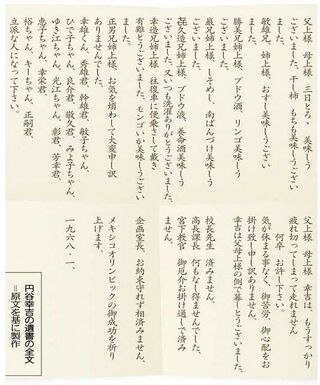 父上様 母上様 三日とろゝ 美味しう
ございました。干し柿、もちも美味しうござい
ました。
敏雄兄、姉上様、おすし美味しうござい
ました。
勝美兄姉上様 ブドウ酒、リンゴ美味しう
ございました。
巌兄姉上様 しそめし、南ばんづけ美味しう
ございました。
㐂久造兄姉上様 ブドウ液、養命酒美味しう
ございました。又いつも洗濯ありがとうございました。
幸造兄姉上様 往復車に便乗させて戴き
有難うございました。モンゴいか美味しうござい
ました。
正男兄姉上様、お気を煩わして大変申し訳
ありませんでした。
幸雄君、秀雄君、幹雄君、敏子ちゃん、
ひで子ちゃん、良介君、敬久君、みよ子ちゃん、
ゆき江ちゃん、光江ちゃん、彰君、芳幸君、
恵子ちゃん、幸栄君、
裕ちゃん、キーちゃん、正嗣君、
立派な人になって下さい。
父上様 母上様 幸吉は、もうすっかり
疲れ切ってしまって走れません。
何卒 お許し下さい。
気が休まる事なく、御苦労、御心配をお
掛け致し申し訳ありません。
幸吉は父母上様の側で暮しとうございました。
校長先生 済みません。
高長課長 何もなし得ませんでした。
宮下教官 御厄介お掛け通しで済み
ません。
企画室長、お約束守れず相済みません。
メキシコオリンピックの御成功を祈り
上げます。
一九六八・一、
円谷幸吉の遺書の全文
＝原文を基に製作